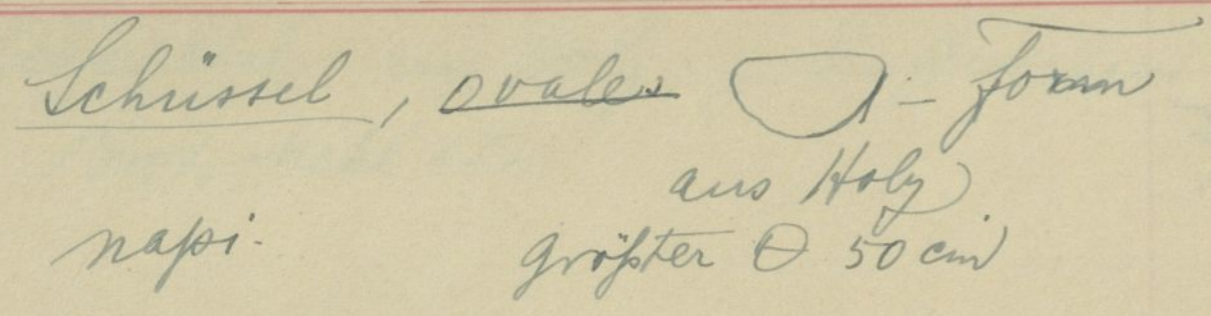 Schüssel, ovale - Form
aus Holz
napi. größter ⌀ 50 cm